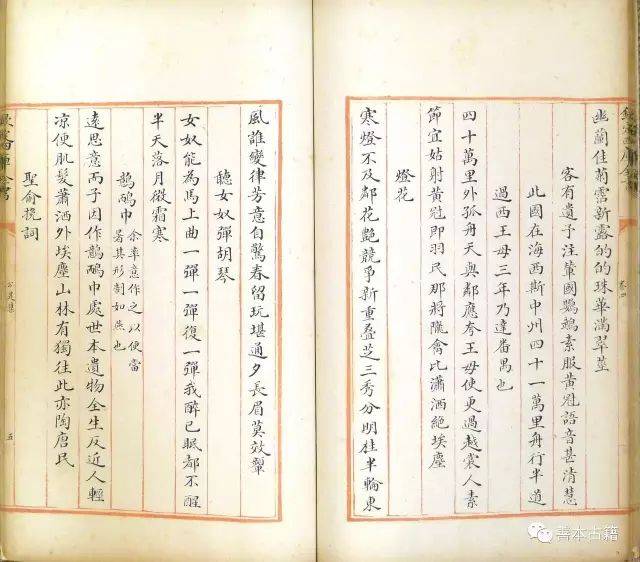 欽定四庫全書
卷四
幽蘭佳菊霑新露的的珠華滿翠莖
客有遺予注輦國鸚鵡素服黃冠語音甚清慧
此國在海西距中州四十一萬里舟行半道
過西王母三年乃達番禺也
四十萬里外孤舟天與鄰應夸王母使更過越裳人素
節宜姑射黃冠即羽民那將隴禽比瀟洒絕埃塵
燈花
寒燈不及鄰花艷競爭新重疊芝三秀分明桂半輪東
風誰變律芳意自驚春留玩堪通夕長眉莫效顰
聽女奴彈胡琴
女奴能為馬上曲一彈一彈復一彈我醉已眠都不醒
半天落月微霜寒
鷾鴯巾
余率意作之以便當
暑其形制如燕也
遠思意而子因作鷾鴯巾處世本遺物全生反近人輕
涼便肌髮蕭洒外埃塵山林有獨往此亦陶唐民
聖俞挽詞
欽定四庫全書
公是集
五
善本古籍